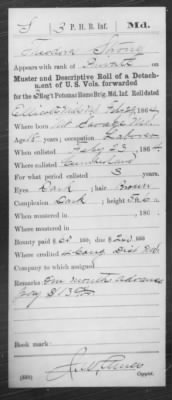 S | 3 P. H. B. Inf. | Md.
Theodore Strong
Appears with rank of Private on
Muster and Descriptive Roll of a Detachment of U. S. Vols. forwarded
for the 3 Reg't Potomac Home Brig. Md. Inf. Roll dated
186 4
Where born Mt Savage Md.
Age 18 years; occupation Laborer
When enlisted Feby 23, 186 4
Where enlisted Cumberland
For what period enlisted 3 years.
Eyes Dark ; hair Brown
Complexion Dark ; height 5 ft. 6 in.
When mustered in , 186 .
Where mustered in
Bounty paid $ 60 100; due $ 240 100
Where credited 4 Cong. Dist Md.
Company to which assigned
Remarks: One month advance
pay $13.00
Book mark:
(339) Copyist.